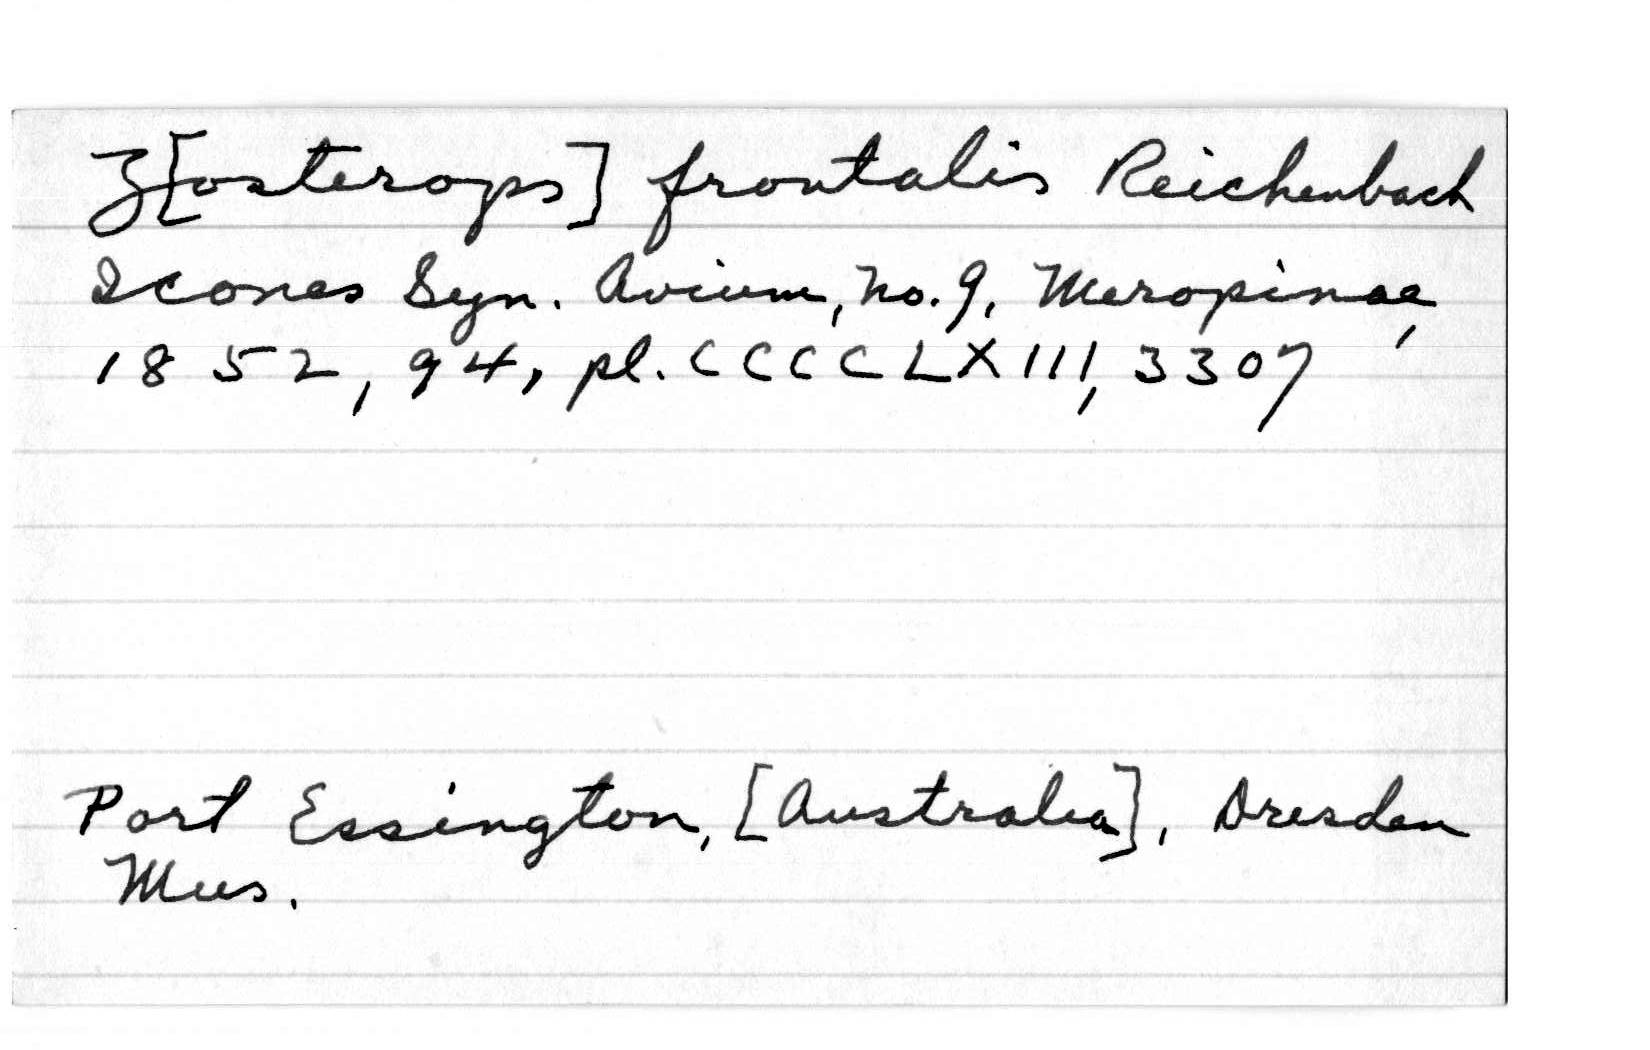 Z[osterops] frontalis Reichenbach
Icones Syn. Avium, No. 9, Meropinae,
1852, 94, pl. CCCCLXIII, 3307
Port Essington, [Australia], Dresden
Mus.